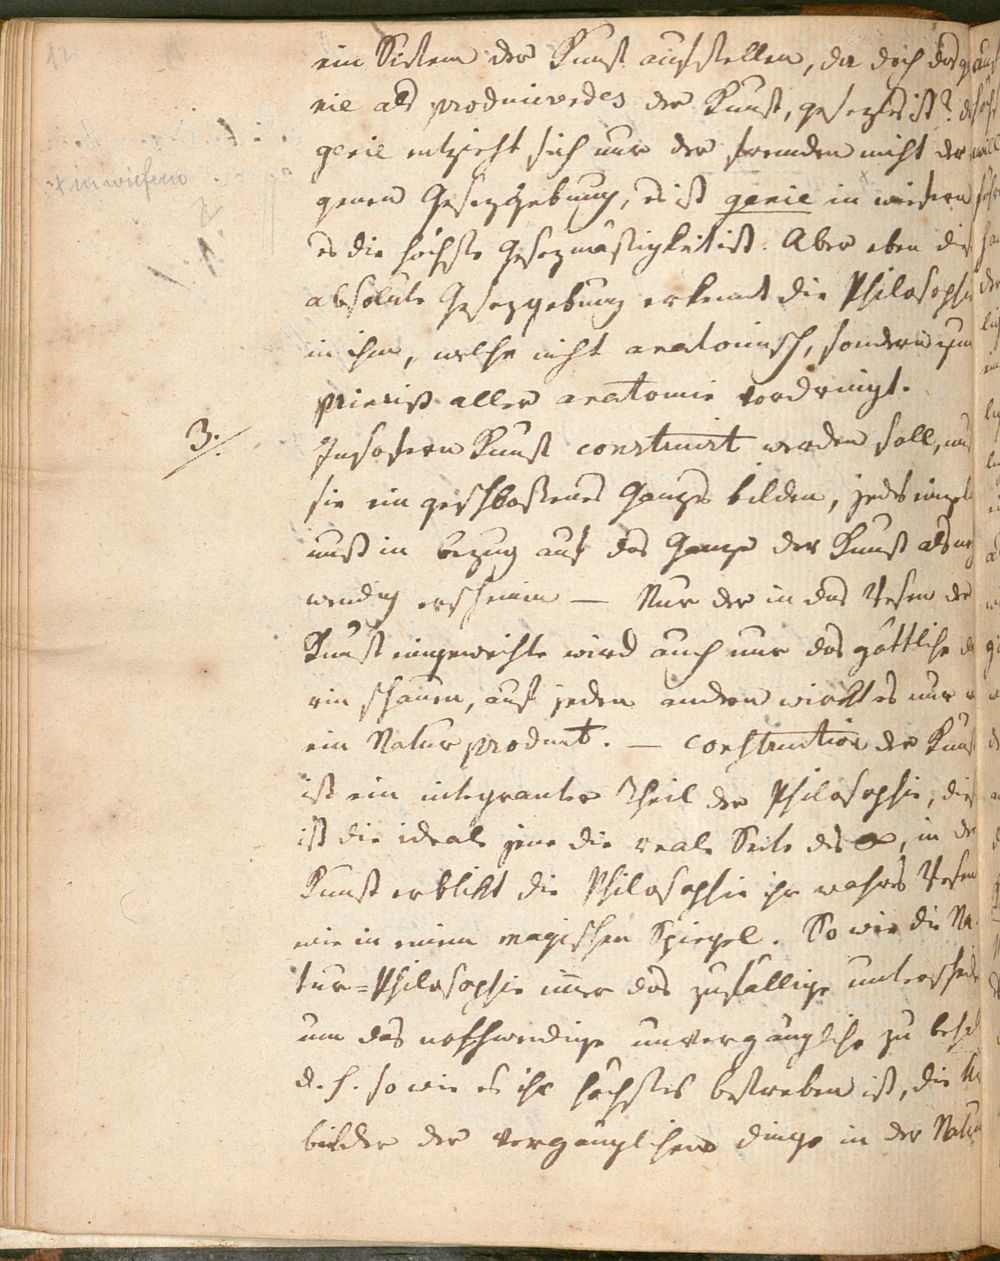 12
ein Sistem der Kunst aufstellen, da doch das ge
nie als producirendes der Kunst, gesezlos ist? das
genie entzieht sich nur der fremden nicht der ei
genen Gesezgebung, es ist genie in wiefern
+ inwiefern
es die höchste Gesezmäsigkeit ist. Aber eben diese
absolute Gesezgebung erkennt die Philosophie
in ihm, welche nicht anatomisch, sondern zum
Princip aller anatomie vordringt.
3.
Insofern Kunst construirt werden soll, muß
sie ein geschloßenes Ganzes bilden, jedes einzelne
muß in bezug auf das Ganze der Kunst als noth
wendig erscheinen — Nur der in das Wesen der
Kunst eingeweihte wird auch nur das göttliche da
rin schauen, auf jeden andern wirkt es nur wie
ein Natur product. — Construction der Kunst
ist ein integranter Theil der Philosophie, diese
ist die ideale jene die reale Seite des ∞, in der
Kunst erblikt die Philosophie ihr wahres Wesen
wie in einem magischen Spiegel. So wie die Na
tur=Philosophie immer das zufällige unterscheidet
um das nothwendige unvergängliche zu
d. h. so wie es ihr höchstes bestreben ist, die Ur
bilder der vergänglichen dinge in der Natur